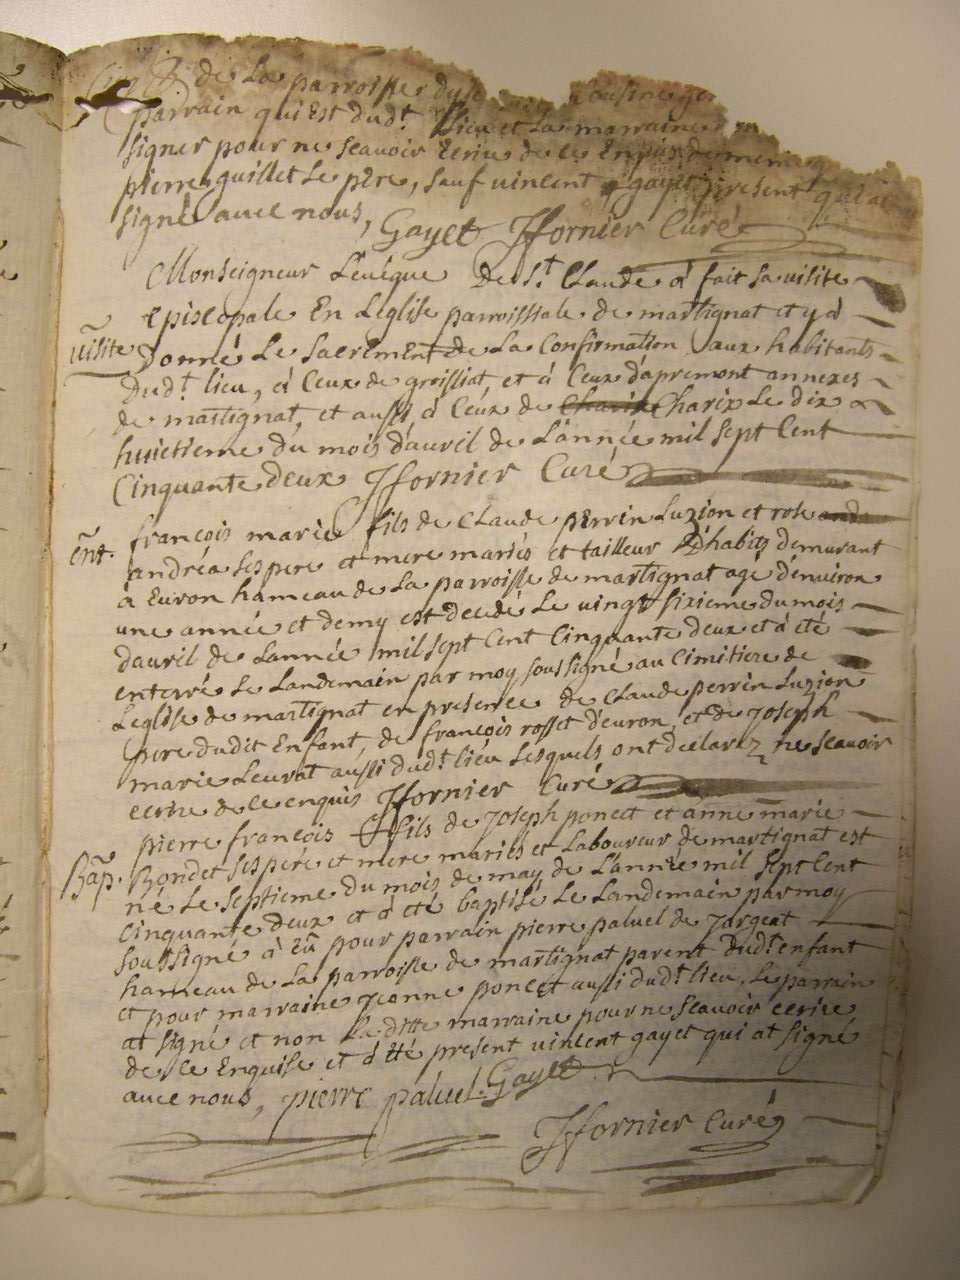 de La parroisse du
parrain qui Est dud.t Lieu et La marraine
signer pour ne scavoir Ecrire de ce Enquis
pierre guillet Le pere, sauf vincent gayet present qui at
signé avec nous, Gayet Jfornier Curé
Monseigneur L'evéque De S.t Claude á fait sa visite
Episcopale En L'eglise parroissiale de martignat et y á
visite
Donné Le Sacrement de La Confirmation aux habitants
Dud.t lieu, á Ceux de groissiat, et á Ceux d'apremont annexes
de martignat, et aussi á Ceux de Charix Charix Le dix
huictieme du mois d'avril de L'année mil sept Cent
Cinquante Deux Jfornier Curé
ent.
françois marie fils de Claude perrin Luzion et rose
andréa ses pere et mere mariés et tailleur D'habits demurant
á Euron hameau de La parroisse de martignat agé d'environ
une année et demy est decedé Le vingt sixieme du mois
d'avril de L'année mil sept Cent Cinquante deux et á eté
enterré Le Landemain par moy soussigné au Cimitiere de
Leglise de martignat en presence de Claude perrin Luzion
pere dudit Enfant, de françois rosset d'euron, et de Joseph
marie Leurat aussi dud.t lieu Lesquels ont declarez ne scavoir
ecrire de ce enquis Jfornier Curé
pierre françois fils de Joseph poncet et anne marie
Bap.
Bondet ses pere et mere mariés et Laboureur de martignat est
né Le septieme du mois de may de L'année mil sept Cent
Cinquante deux et á eté baptisé Le Landemain par moy
soussigné á Eü pour parrain pierre paluel de Jargeat
hameau de La parroisse de martignat parent dud.t enfant
et pour marraine Jeanne poncet aussi dud.t lieu, Le parrain
at signé et non La ditte marraine pour ne scavoir ecrire
de ce Enquise et á été present vincent gayet qui at signé
avec nous, pierre paluel. Gayet
Jfornier Curé